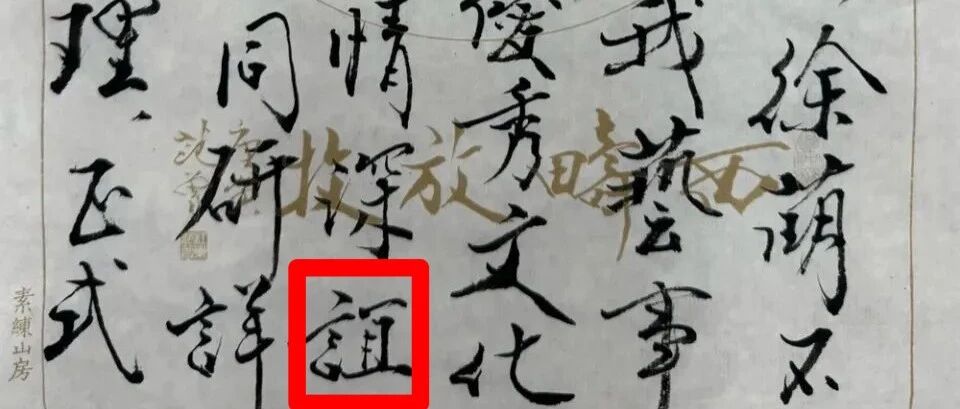 徐萌不
我藝事
優秀文化
情深誼
同研詳
理、正式
西疇放牧
素練山房